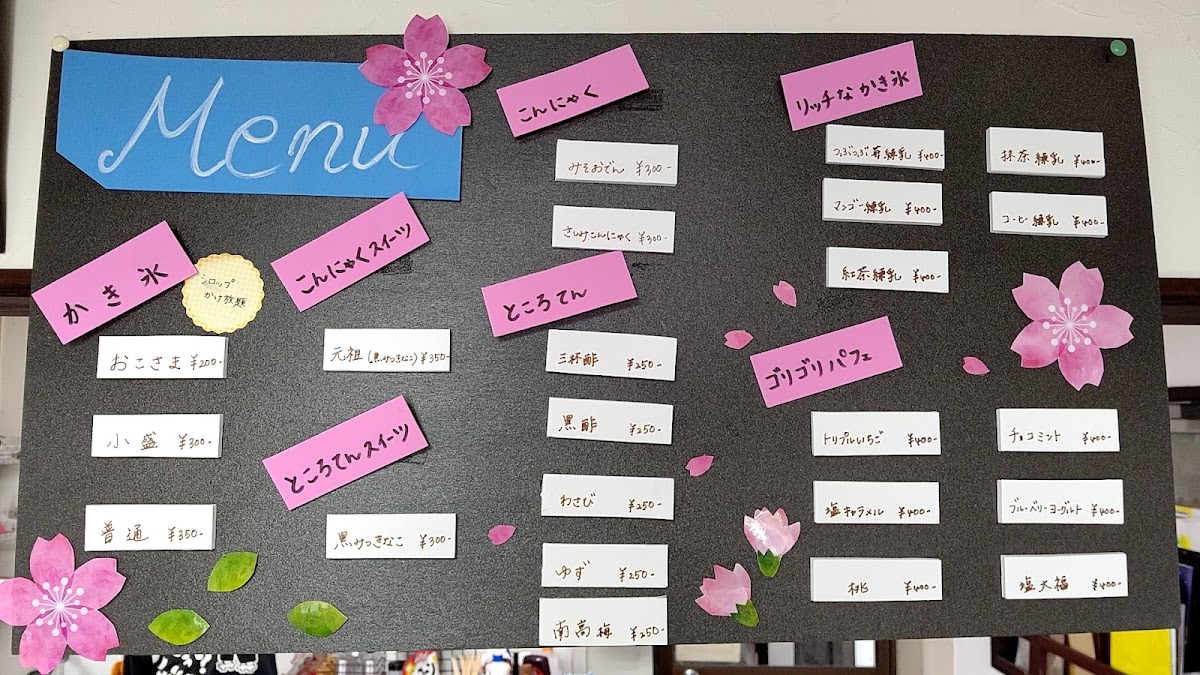 Menu
かき氷
シロップ
かけ放題
おこさま ¥200-
小盛 ¥300-
普通 ¥350-
こんにゃくスイーツ
元祖(黒みつきなこ) ¥350-
ところてんスイーツ
黒みつきなこ ¥300-
こんにゃく
みそおでん ¥300-
さしみこんにゃく ¥300-
ところてん
三杯酢 ¥250-
黒酢 ¥250-
わさび ¥250-
ゆず ¥250-
南高梅 ¥250-
リッチなかき氷
つぶつぶ苺練乳 ¥400-
マンゴー練乳 ¥400-
紅茶練乳 ¥400-
抹茶練乳 ¥400-
コーヒー練乳 ¥400-
ゴリゴリパフェ
トリプルいちご ¥400-
塩キャラメル ¥400-
桃 ¥400-
チョコミント ¥400-
ブルーベリーヨーグルト ¥400-
塩大福 ¥400-